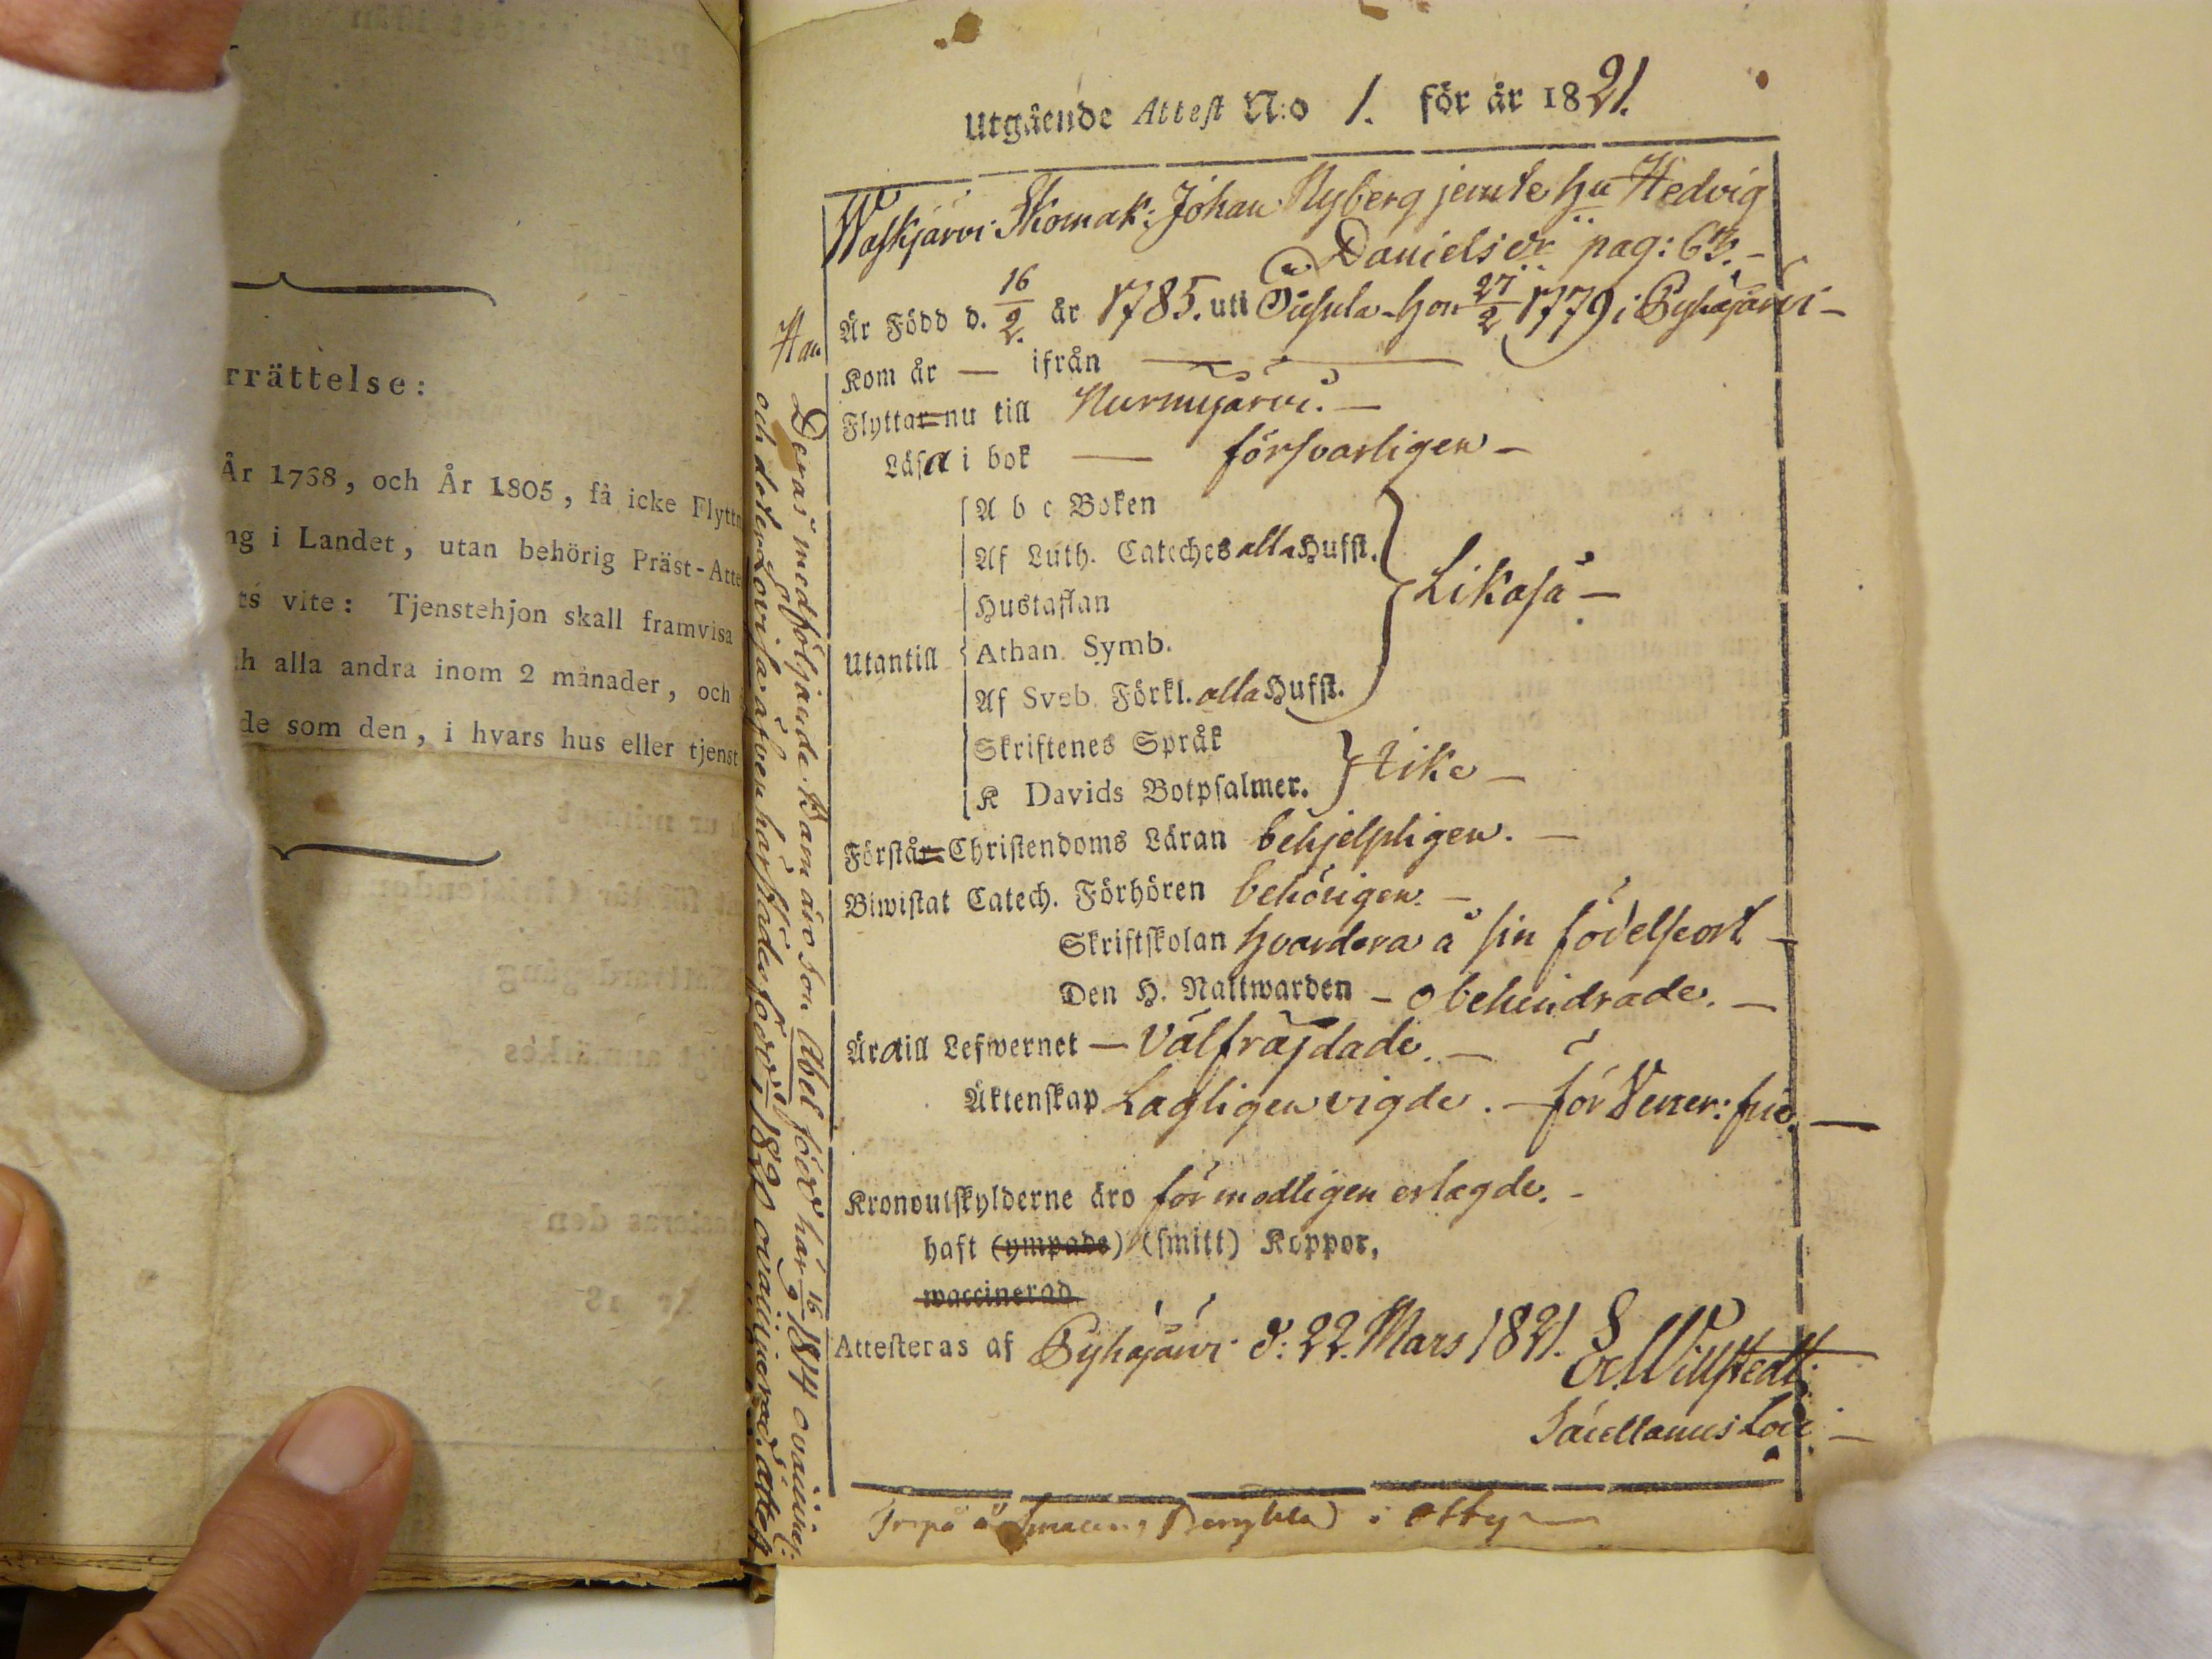 rrättelse:
År 1768, och År 1805, få icke Flyttn
ng i Landet, utan behörig Präst-Atte
ts vite: Tjenstehjon skall framvisa
h alla andra inom 2 månader, och
de som den, i hvars hus eller tjenst
Utgående Attest N:o 1. för år 1821.
Waskjärvi Skomak: Johan Nyberg jemte hu Hedvig
Danielsdr pag: 63.
Är Född d. 16/2 år 1785. uti Tusula hon 27/2 1779 i Pyhäjärvi
Kom år — ifrån —
Flyttar nu till Nurmijärvi. —
Läsa i bok — försvarligen —
A b c Boken
Af Luth. Cateches alla Hufst.
Hustaflan
Likaså —
Utantill
Athan. Symb.
Af Sveb. Förkl. alla Hufst.
Skriftenes Språk
K Davids Botpsalmer.
icke —
Förstår Christendoms Läran behjelpligen. —
Biwistat Catech. Förhören behörigen. —
Skriftskolan hvardera å sin födelseort —
Den H. Nattwarden — obehindrade. —
Ära till Lefwernet — Välfräjdade. —
Äktenskap Lagligen vigde. — för Vener: frie. —
Kronoutskylderne äro förmodligen erlagde. -
haft (ympade) (smitt) Koppor,
waccinerad
Attesteras af Pyhäjärvi d: 22. Mars 1821.
Willstedt
Sacellanus Loci —
Han
Deras medföljande Barn äro son Abel född här 16/9 1814 ovacciner:
och dotter Lovisa äfven härstädes född 1820 ovaccinerad. attest